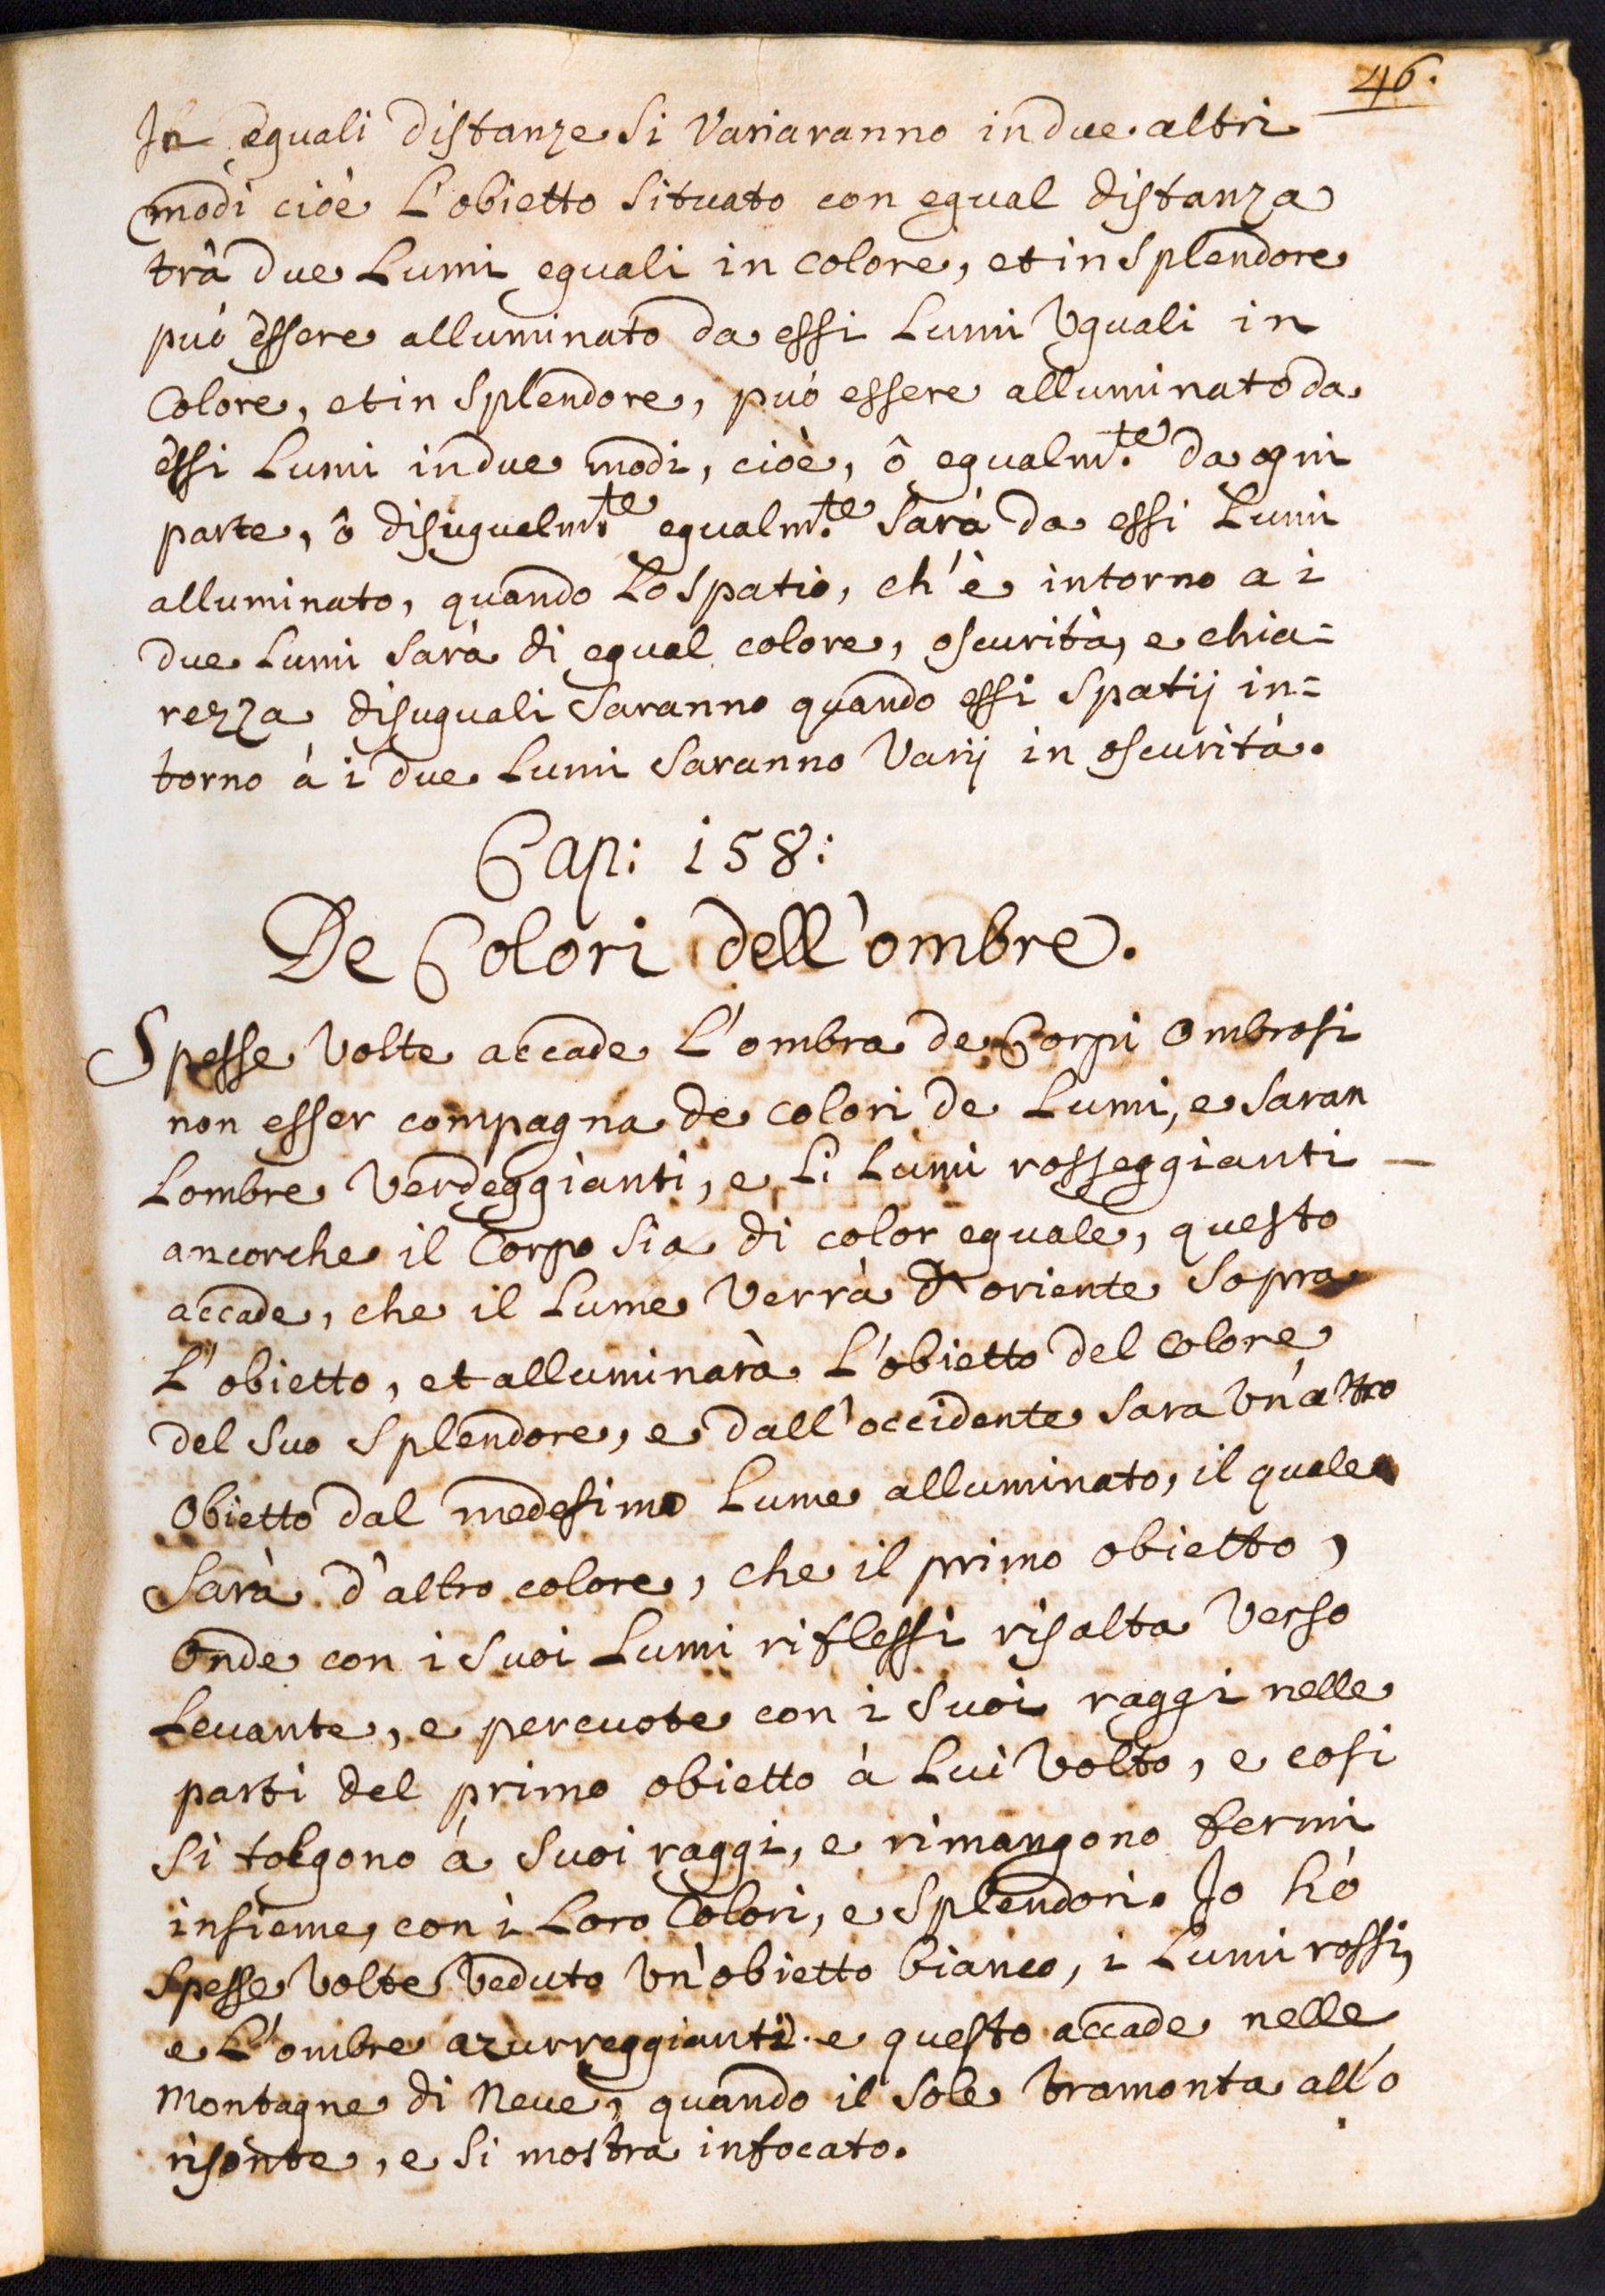 46.
In eguali distanze si variaranno in due altri
modi cioè L'obietto situato con egual distanza
trà due Lumi eguali in colore, et in splendore
può essere alluminato da essi Lumi Vguali in
Colore, et in splendore, può essere alluminato da
essi Lumi in due modi, cioè, ô egualm.te da ogni
parte, ô disugualm.te egualm.te sarà da essi Lumi
alluminato, quando Lo spatio, ch'è intorno a i
due Lumi sarà di egual colore, oscurità, e chia=
rezza disuguali saranno quando essi spatij in=
torno à i due Lumi saranno Varij in oscurità.
Cap: 158:
De Colori dell'ombre.
Spesse Volte accade L'ombra de Corpi Ombrosi
non esser compagna de colori de Lumi, e saran
Lombre Verdeggianti, e Li Lumi rosseggianti –
ancorche il Corpo sia di color eguale, questo
accade, che il Lume Verrà d'oriente sopra
L'obietto, et alluminarà L'obietto del colore
del suo splendore, e dall'occidente sara Vn'altro
Obietto dal medesimo Lume alluminato, il quale
sarà d'altro colore, che il primo obietto,
Onde con i suoi Lumi riflessi risalta Verso
Leuante, e percuote con i suoi raggi nelle
parti del primo obietto à Lui Volto, e cosi
si tolgono à suoi raggi, e rimangono fermi
insieme, con i Loro Colori, e splendori. Io hò
spesse Volte Veduto Vn'obietto bianco, i Lumi rossi,
e L'ombre azurreggianti. e questo accade nelle
Montagne di Neue, quando il sole tramonta all'o
risonte, e si mostra infocato.